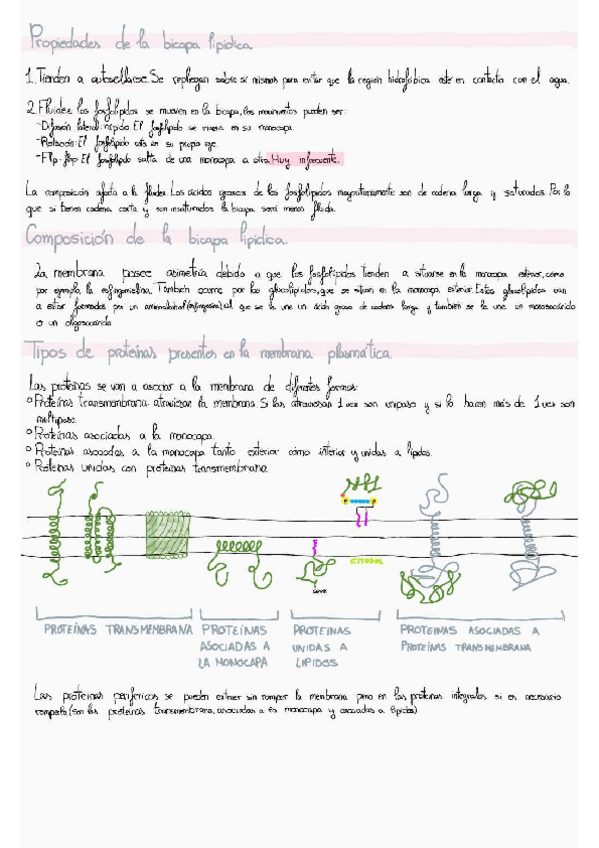 Propiedades de la bicapa lipídica
1. Tienden a autosellarse. Se repliegan sobre sí mismos para evitar que la región hidrofóbica esté en contacto con el agua.
2. Fluidez: los fosfolípidos se mueven en la bicapa, los movimientos pueden ser:
-Difusión lateral: rápido. El fosfolípido se mueve en su monocapa.
-Rotación: El fosfolípido rota en su propio eje.
-Flip-flop: El fosfolípido salta de una monocapa a otra. Muy infrecuente.
La composición afecta a la fluidez. Los ácidos grasos de los fosfolípidos mayoritariamente son de cadena larga y saturados. Por lo
que si tienen cadena corta y son insaturados la bicapa será menos fluida.
Composición de la bicapa lipídica.
La membrana posee asimetría debido a que los fosfolípidos tienden a situarse en la monocapa exterior, como
por ejemplo la esfingomielina. También ocurre por los glucolípidos, que se sitúan en la monocapa exterior. Estos glucolípidos van
a estar formados por un aminoalcohol (esfingosina) al que se le une un ácido graso de cadena larga y también se le une un monosacárido
o un oligosacárido.
Tipos de proteínas presentes en la membrana plasmática.
Las proteínas se van a asociar a la membrana de diferentes formas:
Proteínas transmembrana: atraviesan la membrana. Si las atraviesan 1 vez son unipaso y si lo hacen más de 1 vez son
multipaso.
Proteínas asociadas a la monocapa.
Proteínas asociadas a la monocapa tanto exterior como interior y unidas a lípidos.
Proteínas unidas con proteínas transmembrana.
CITOSOL
PROTEÍNAS TRANSMEMBRANA
PROTEÍNAS
ASOCIADAS A
LA MONOCAPA
PROTEÍNAS
UNIDAS A
LIPIDOS
PROTEÍNAS ASOCIADAS A
PROTEÍNAS TRANSMEMBRANA
Las proteínas periféricas se pueden extraer sin romper la membrana pero en las proteínas integrales si es necesario
romperla (son las proteínas transmembrana, asociadas a la monocapa y asociadas a lípidos)